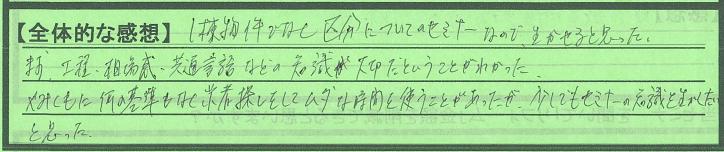 【全体的な感想】 1棟物件でなく区分についてのセミナーなので、生かせると思った。
工程・相場感・共通言語などの知識が大切だということがわかった。
何の基準もなく業者探しをしてムダな時間を使うことがあったが、少しでもセミナーの知識を生かしたい
と思った。